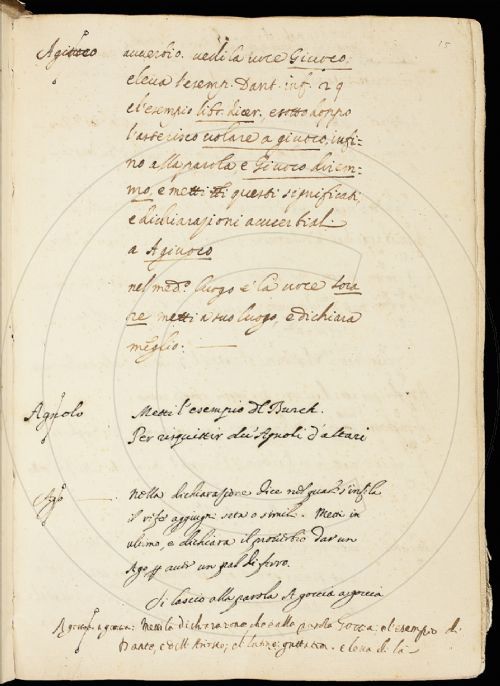 15
Agiuoco avverbio. vedi la voce Giuoco,
e leva l'esemp. Dant. inf. 29
e l'esempio libr. dicer., e sotto doppo
l'asterisco volare a giuoco, infi-
no alla parola e Giuoco divem-
mo, e metti questi significati,
e dichiarazioni avverbial.
a Agiuoco
nel med.º luogo e' la voce sora
re metti a suo luogo, e dichiara
meglio.
Agnolo Metti l'esempio del Burch.
Per rivestir du' Agnoli d'altari
Ago Nella dichiarazione dice nel qual s'infila
il refe aggiugni seta o simil. Metti in
ultimo, e dichiara il proverbio dar un
Ago p aver un pal di ferro.
Si lascio alla parola A goccia agoccia
A goccia a goccia: Metti la dichiarazione che è alla parola Gocca, el esempio di
Dante, e dell' Ariosto, el latino guttatim. e leva di la